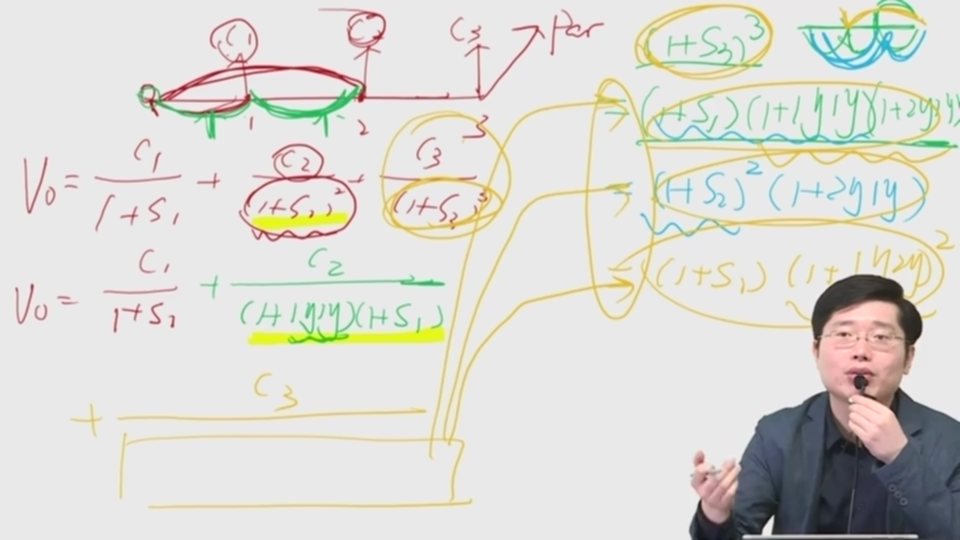 C1 C2 C3 Par
1 2 3
V0 = C1/(1+S1) + C2/(1+S2)^2 + C3/(1+S3)^3
V0 = C1/(1+S1) + C2/((1+1y1y)(1+S1))
+ C3
(1+S3)^3
= (1+S1)(1+1y1y)(1+2y1y)
= (1+S2)^2 (1+2y1y)
= (1+S1) (1+1y2y)^2